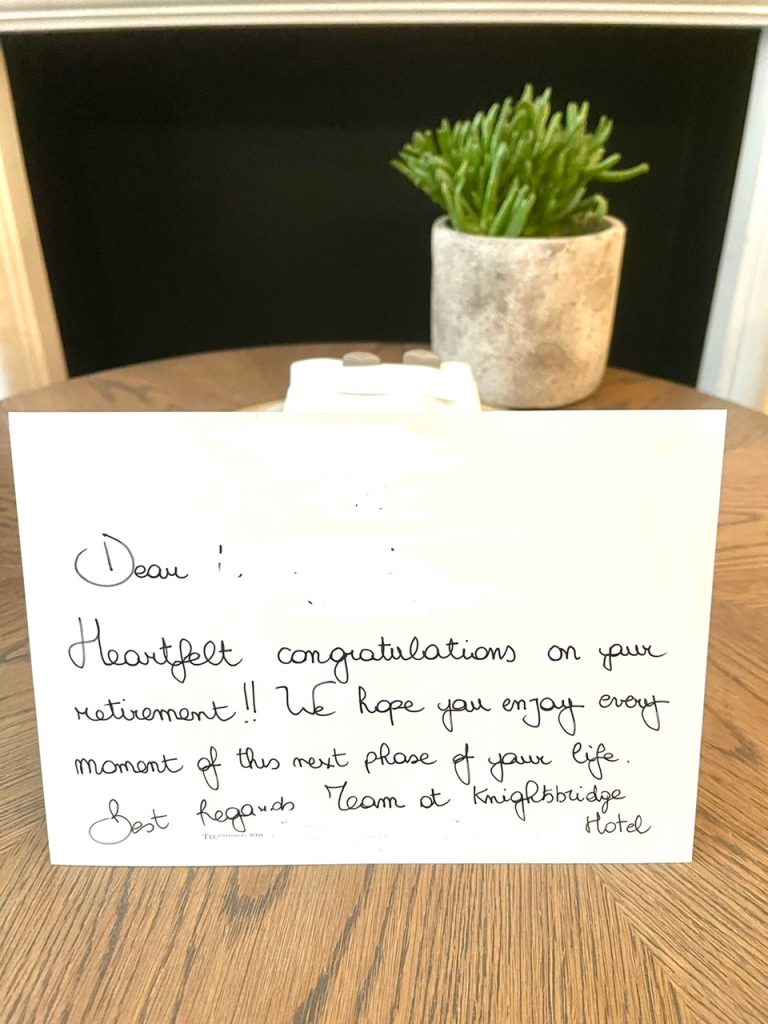 Dear
Heartfelt congratulations on your
retirement!! We hope you enjoy every
moment of this next phase of your life.
Best Regards Team at Knightsbridge
Hotel